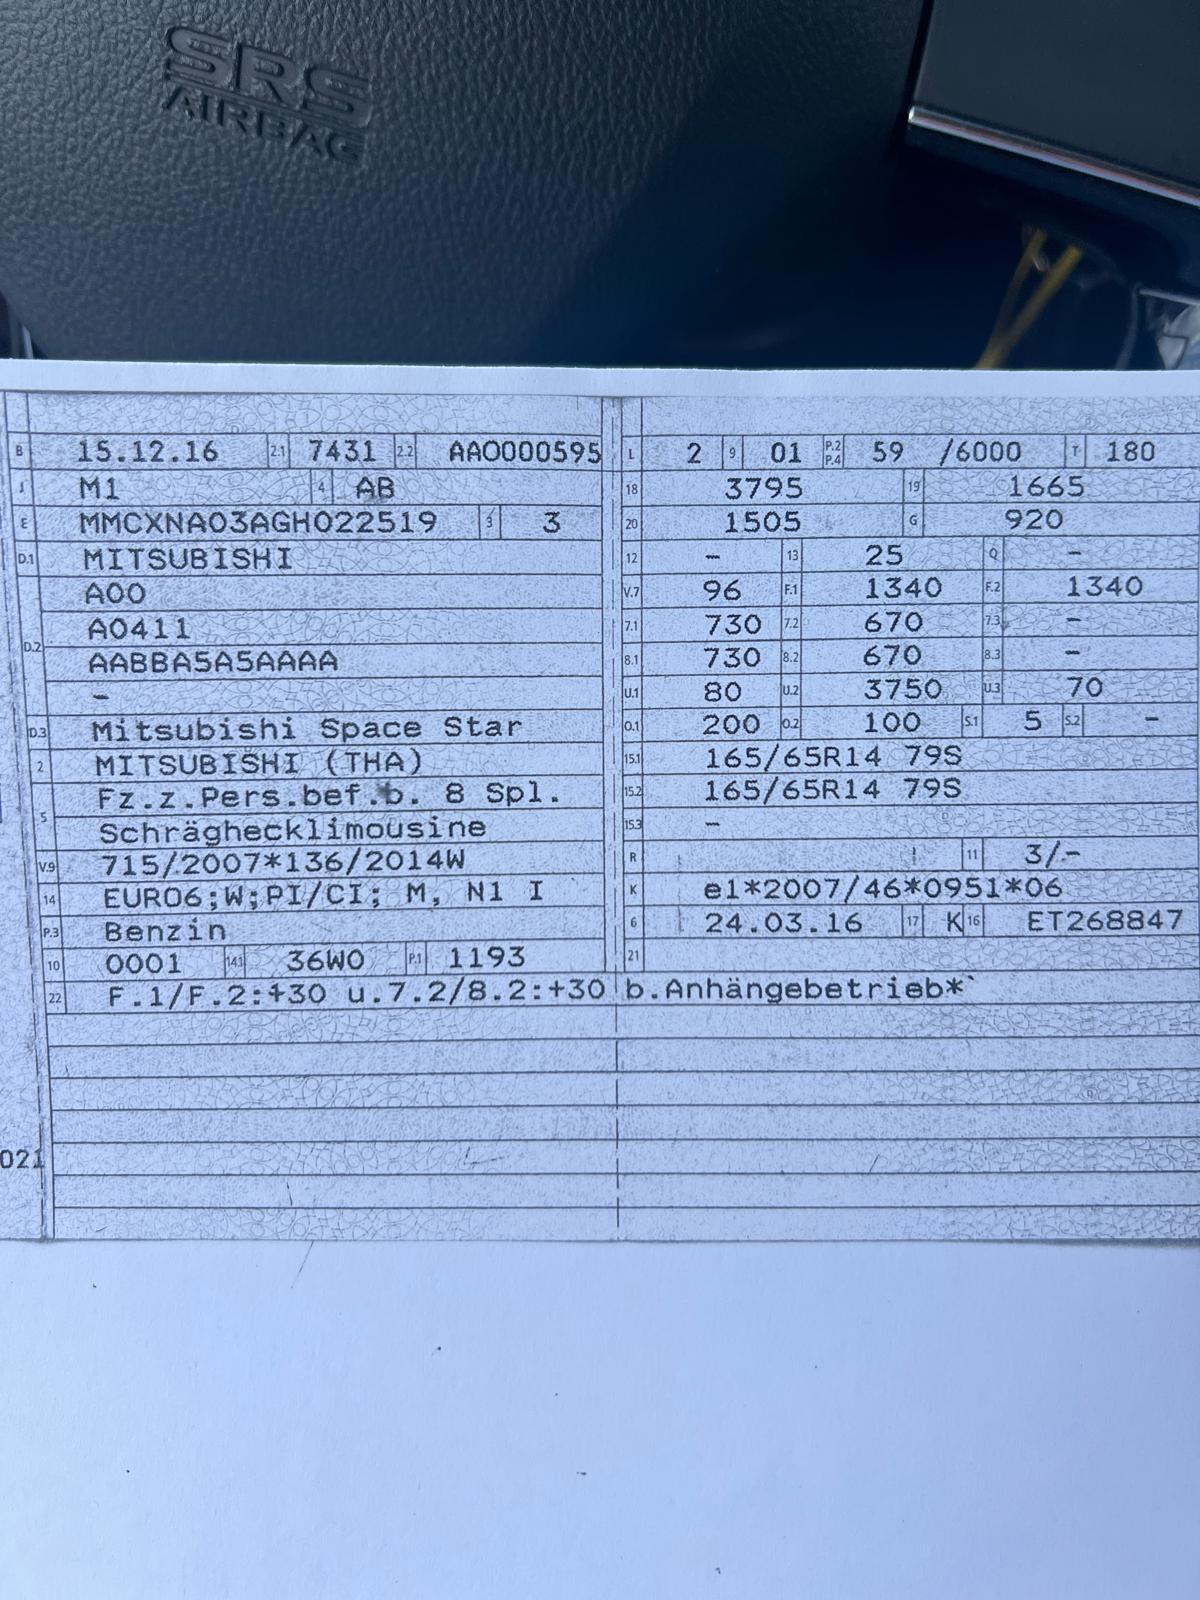 SRS
AIRBAG
B 15.12.16 2.1 7431 2.2 AAO000595
J M1 4 AB
E MMCXNA03AGH022519 3 3
D.1 MITSUBISHI
D.2 A00
A0411
AABBA5A5AAAA
–
D.3 Mitsubishi Space Star
2 MITSUBISHI (THA)
5 Fz.z.Pers.bef.b. 8 Spl.
Schräghecklimousine
V.9 715/2007*136/2014W
14 EURO6;W;PI/CI; M, N1 I
P.3 Benzin
10 0001 14.1 36W0 P.1 1193
L 2 9 01 P.2 P.4 59 /6000 T 180
18 3795 19 1665
20 1505 G 920
12 – 13 25 Q –
V.7 96 F.1 1340 F.2 1340
7.1 730 7.2 670 7.3 –
8.1 730 8.2 670 8.3 –
U.1 80 U.2 3750 U.3 70
O.1 200 O.2 100 S.1 5 S.2 –
15.1 165/65R14 79S
15.2 165/65R14 79S
15.3 –
R 11 3/-
K e1*2007/46*0951*06
6 24.03.16 17 K 16 ET268847
21
22 F.1/F.2:+30 u.7.2/8.2:+30 b.Anhängebetrieb*`
021